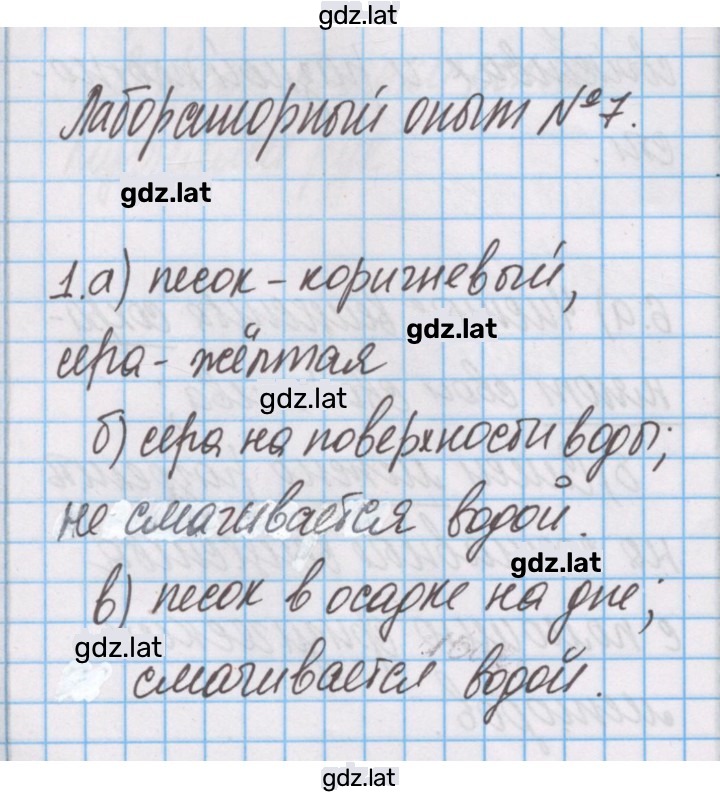 gdz.lat
Лабораторный опыт №7.
gdz.lat
1.а) песок - коричневый,
gdz.lat
сера - жёлтая
gdz.lat
б) сера на поверхности воды;
не смачивается водой.
gdz.lat
в) песок в осадке на дне;
gdz.lat
смачивается водой.
gdz.lat